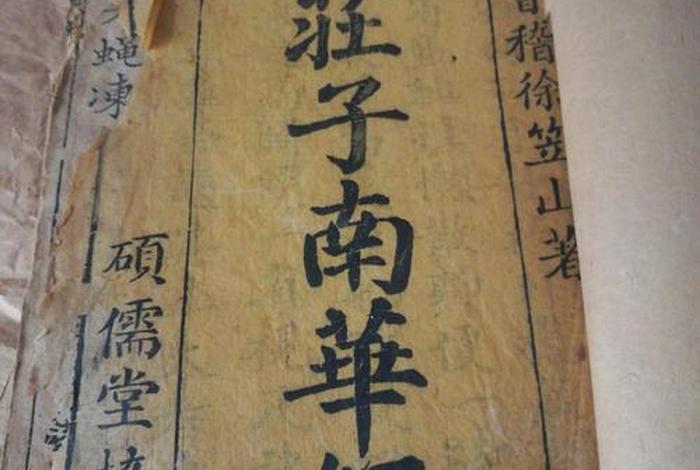 稽徐笠山著
莊子南華
蝇凍
碩儒堂